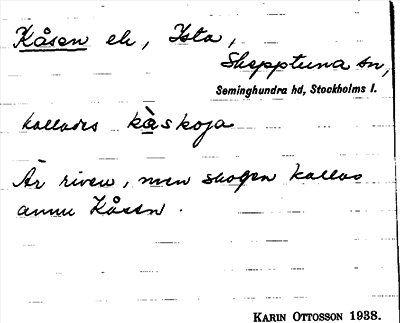 Kåsen eh, Ista,
Skepptuna sn,
Seminghundra hd, Stockholms l.
kallades kåskoja
Är riven, men skogen kallas
ännu Kåsen.
KARIN OTTOSSON 1938.